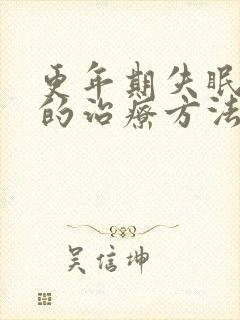 更年期失眠
的治疗方法
吴信坤